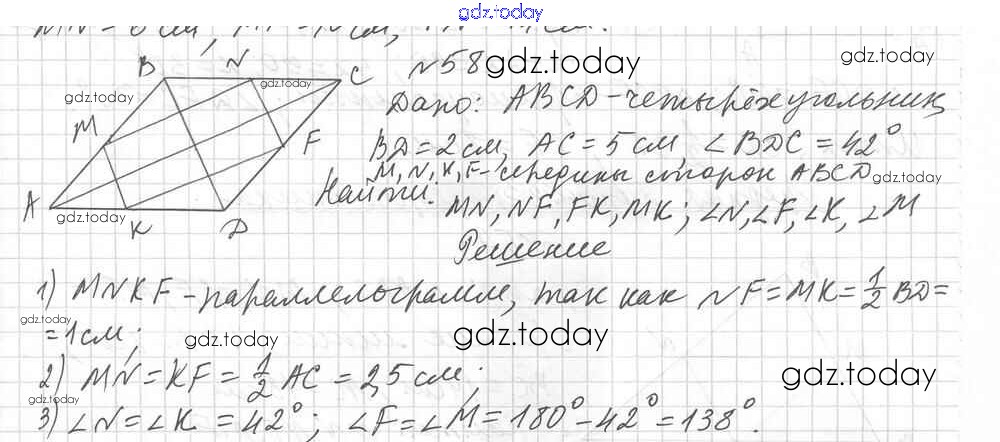 gdz.today
MN = 6 см,
B N C
M F
A K D
№58 gdz.today
gdz.today
gdz.today
gdz.today
Дано: ABCD-четырёхугольник
BD=2 см, AC=5 см, ∠BDC=42°
M, N, K, F-середины сторон ABCD
gdz.today
gdz.today
Найти: MN, NF, FK, MK; ∠N, ∠F, ∠K, ∠M
Решение
1) MNKF-параллелограмм, так как NF=MK=1/2 BD=
gdz.today
=1см;
gdz.today
gdz.today
2) MN=KF=1/2 AC=2,5 см;
gdz.today
gdz.today
3) ∠N=∠K=42°; ∠F=∠M=180°-42°=138°.